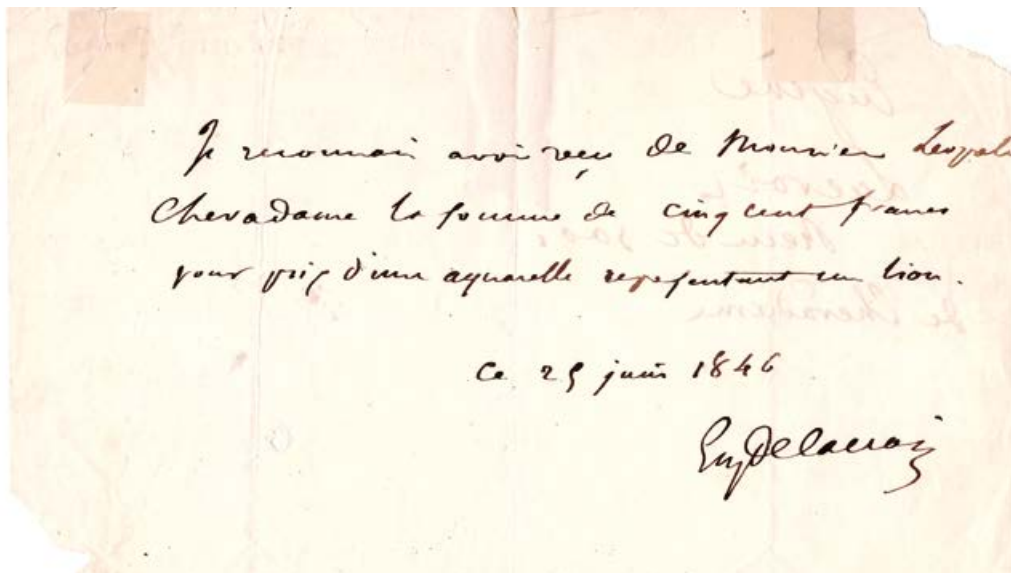 Je reconnais avoir reçu de Monsieur Leopold
Chevadame la somme de cinq cent francs
pour prix d'une aquarelle representant un lion.
Ce 25 juin 1846
EugDelacroix